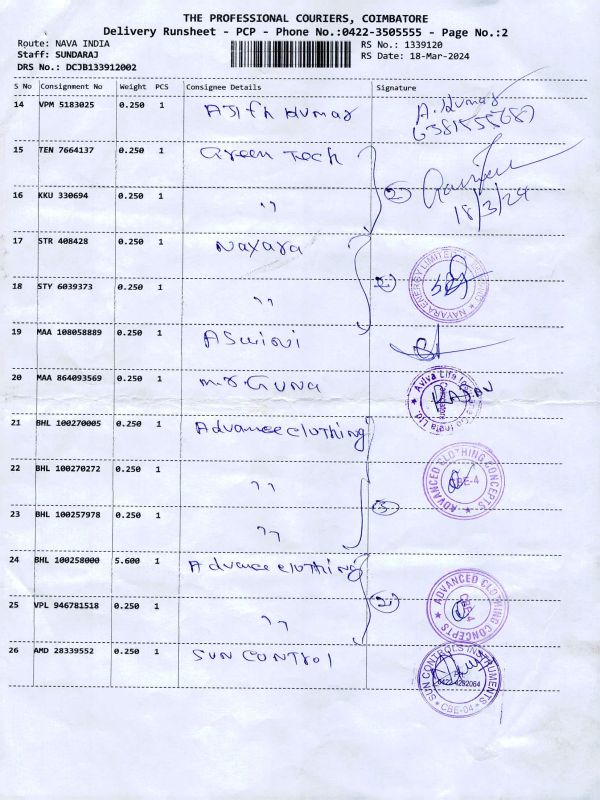 THE PROFESSIONAL COURIERS, COIMBATORE
Delivery Runsheet - PCP - Phone No.:0422-3505555 - Page No.:2
Route: NAVA INDIA
Staff: SUNDARAJ
DRS No.: DCJB133912002
RS No.: 1339120
RS Date: 18-Mar-2024
S No Consignment No Weight PCS Consignee Details Signature
14 VPM 5183025 0.250 1 Ajith Kumar A. Kumar
15 TEN 7664137 0.250 1 Green Tech
16 KKU 330694 0.250 1 " 2 18/3/24
17 STR 408428 0.250 1 Nayara
18 STY 6039373 0.250 1 " 2 NAYARA ENERGY LIMITED
19 MAA 108058889 0.250 1 ASwini
20 MAA 864093569 0.250 1 Mr Guna Aviva Life India Ltd.
21 BHL 100270005 0.250 1 Advance clothing
22 BHL 100270272 0.250 1 " ADVANCED CLOTHING CONCEPTS CBE-4
23 BHL 100257978 0.250 1 " 3
24 BHL 100258000 5.600 1 Advance clothing
25 VPL 946781518 0.250 1 " 2 ADVANCED CLOTHING CONCEPTS CBE-4
26 AMD 28339552 0.250 1 SUN CONTROL SUN CONTROLS INSTRUMENTS CBE-04